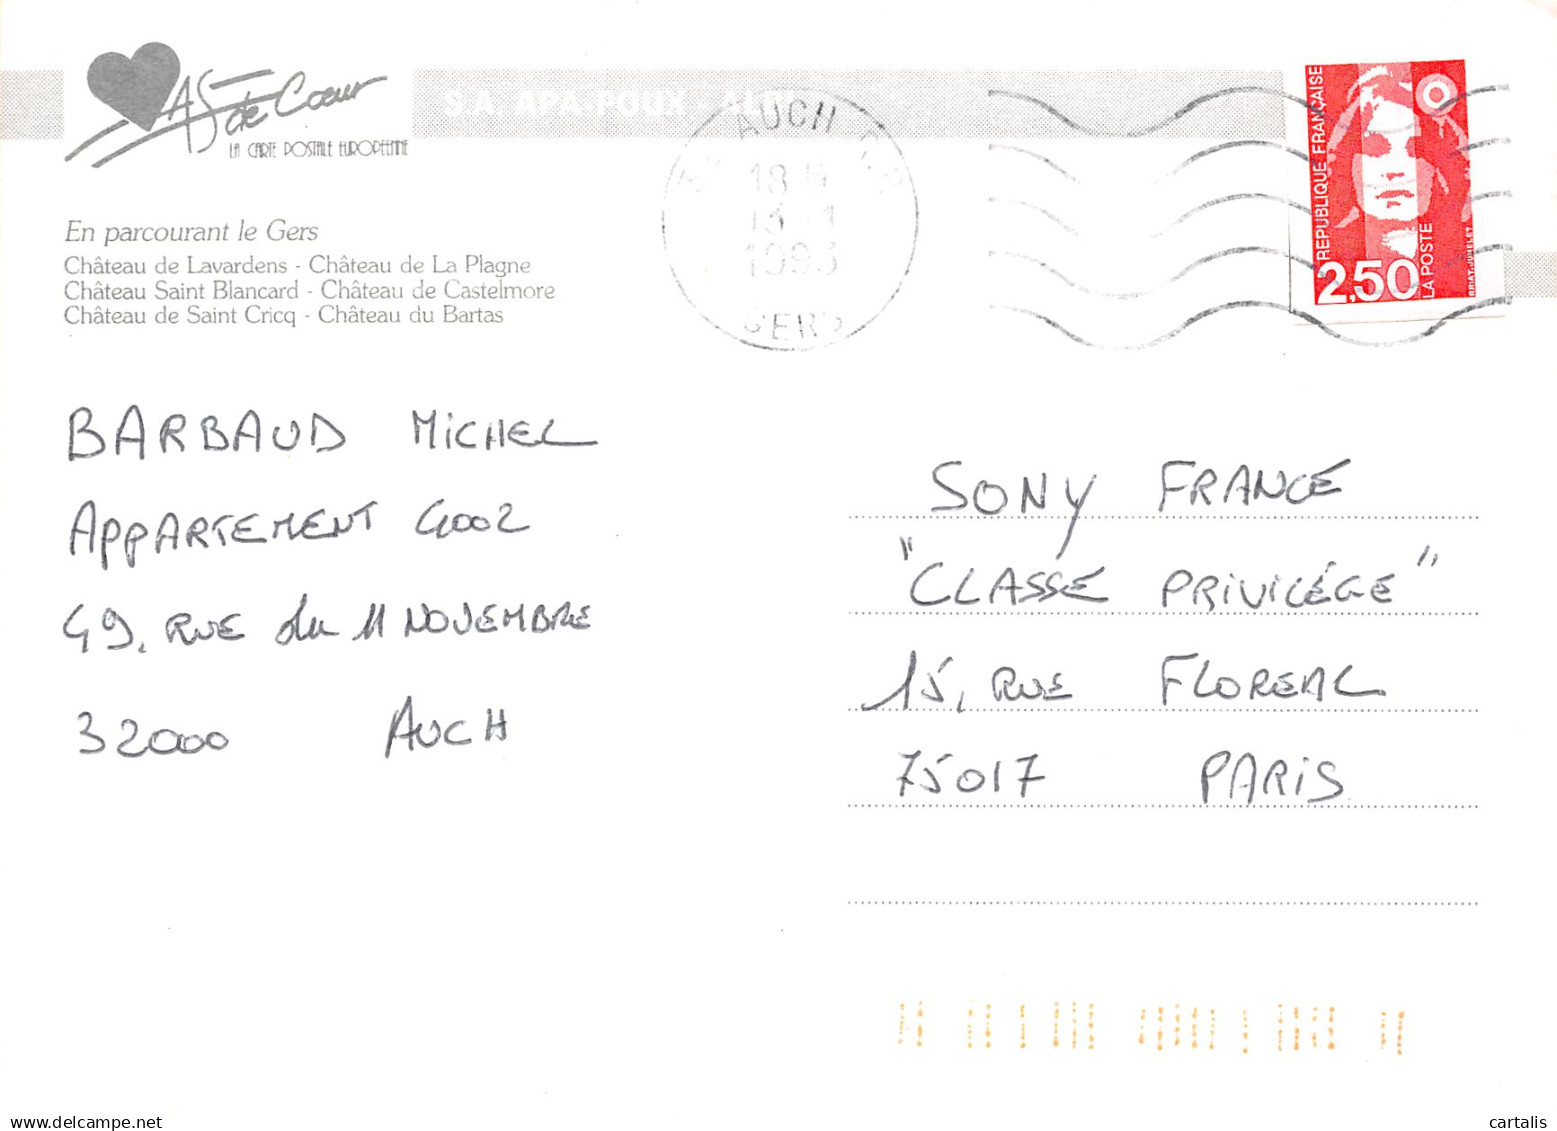 AS de Coeur
LA CARTE POSTALE EUROPÉENNE
S.A. APA-POUX - ALBI
En parcourant le Gers
Château de Lavardens - Château de La Plagne
Château Saint Blancard - Château de Castelmore
Château de Saint Cricq - Château du Bartas
AUCH
18 H
1993
GERS
REPUBLIQUE FRANÇAISE
2,50
LA POSTE
BRIAT-JUMELET
BARBAUD MICHEL
APPARTEMENT 4002
49, RUE du 11 NOVEMBRE
32000 AUCH
SONY FRANCE
"CLASSE PRIVILÉGE"
15, RUE FLOREAL
75017 PARIS
www.delcampe.net
cartalis